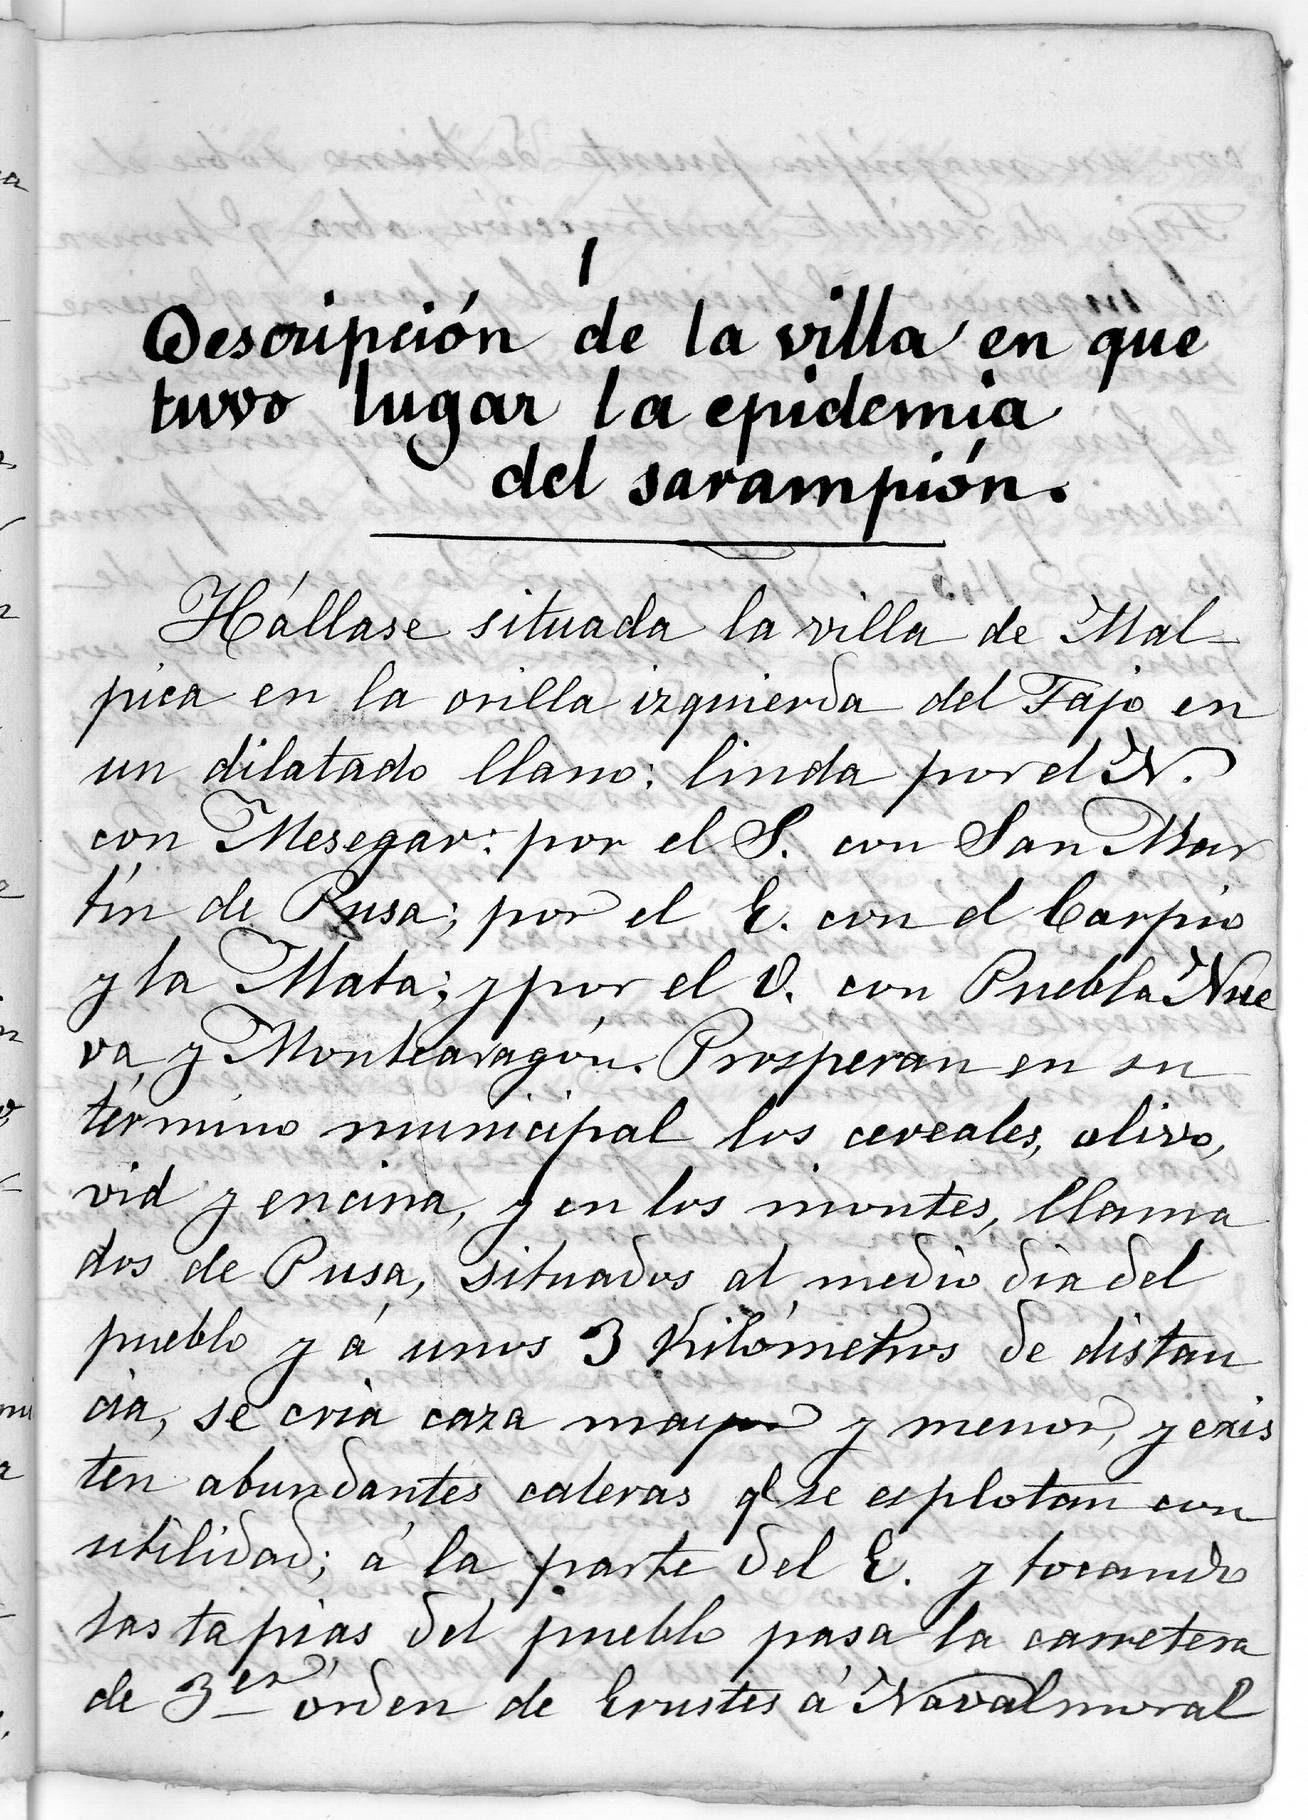 1
Descripción de la villa en que
tuvo lugar la epidemia
del sarampión.
Hállase situada la villa de Mal-
pica en la orilla izquierda del Tajo en
un dilatado llano: linda por el N.
con Mesegar: por el S. con San Mar
tín de Pusa; por el E. con el Carpio
y la Mata; y por el O. con Puebla Nue
va, y Montearagón. Prosperan en su
término municipal los cereales, olivo,
vid y encina, y en los montes, llama
dos de Pusa, situados al medio dia del
pueblo y á unos 3 Kilómetros de distan
cia, se cria caza mayor y menor, y exis
ten abundantes caleras q.e se esplotan con
utilidad; á la parte del E. y tocando
las tapias del pueblo pasa la carretera
de 3er órden de Erustes á Navalmoral